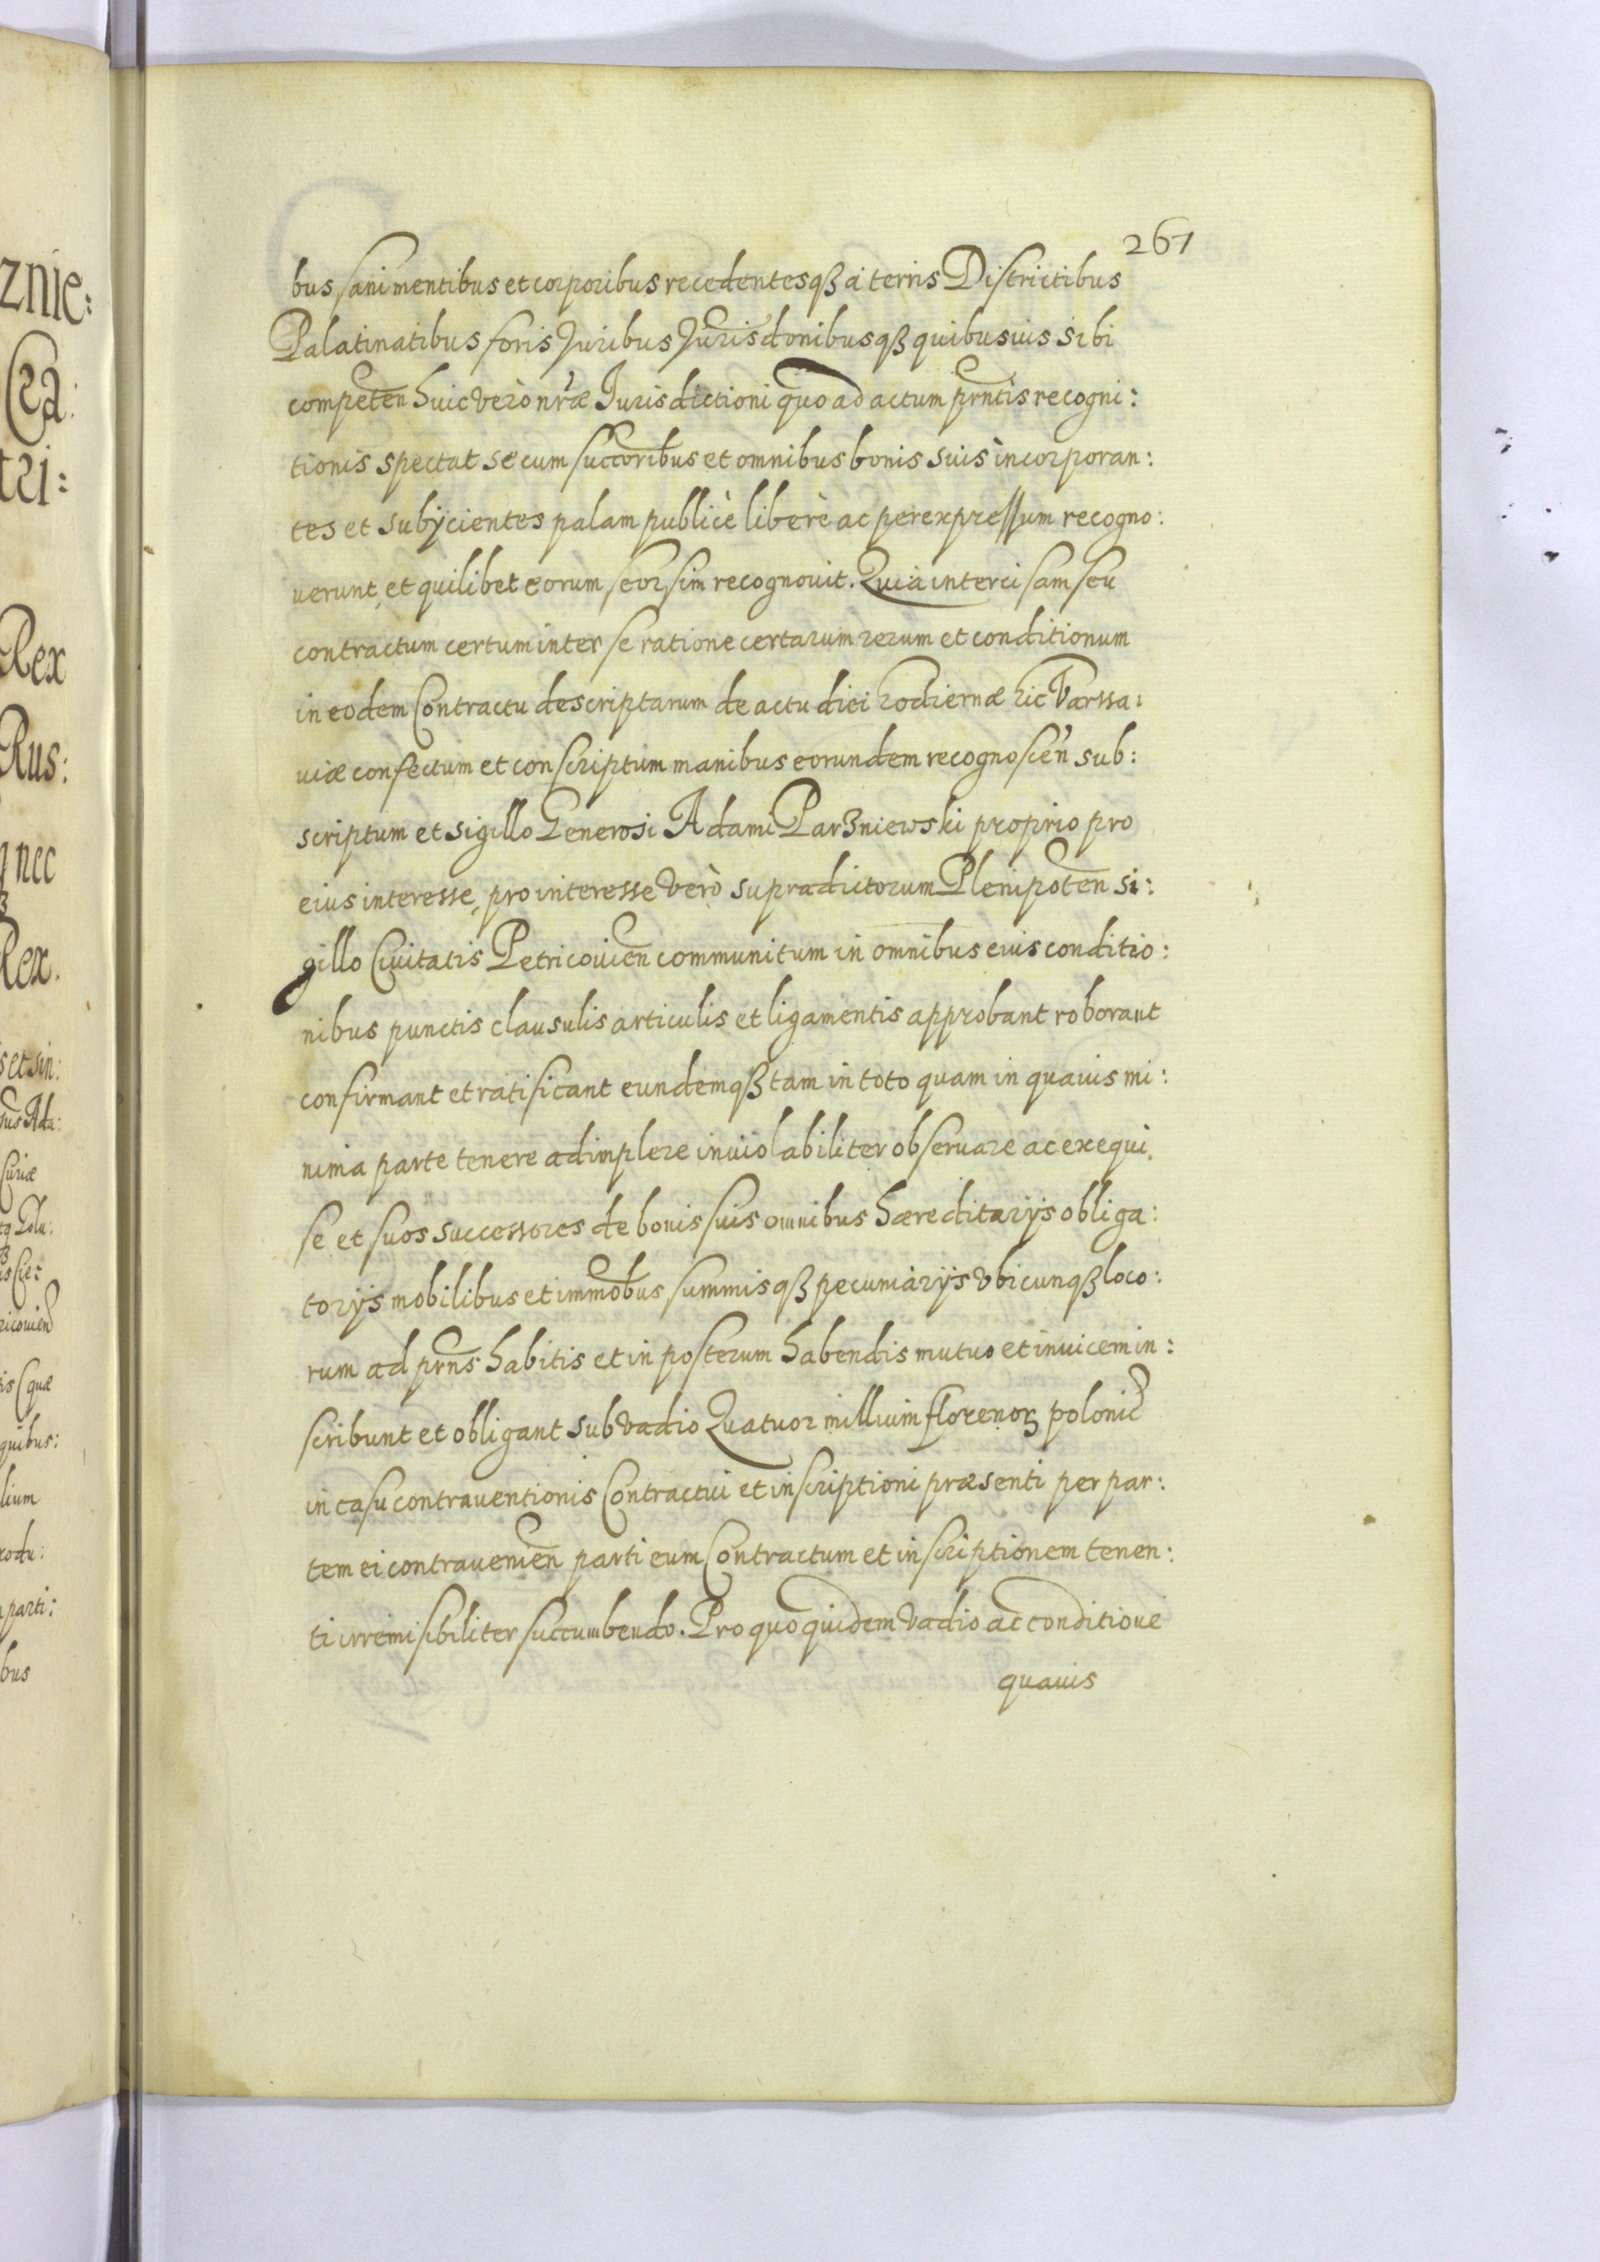 267
bus, sani mentibus et corporibus recedentesqꝫ á terris Districtibus
Palatinatibus foris Juribus Jurisdonibusqꝫ quibusuis sibi
competen huic verò nrae Jurisdictioni quo ad actum prntis recogni:
tionis spectat se cum succoribus et omnibus bonis suis incorporan:
tes et subijcientes palam publicè liberè ac per expressum recogno:
uerunt, et quilibet eorum seorsim recognouit. Quia intercisam seu
contractum certum inter se ratione certarum rerum et conditionum
in eodem Contractu descriptarum de actu diei hodiernae hic Varssa:
uiae confectum et conscriptum manibus eorundem recognoscen sub:
scriptum et sigillo Generosi Adami Parzniewski proprio pro
eius interesse, pro interesse verò supradictorum Plenipoten si:
gillo Ciuitatis Petricouien communitum in omnibus eius conditio:
nibus punctis clausulis articulis et ligamentis approbant roborant
confirmant et ratificant eundemqꝫ tam in toto quam in quauis mi:
nima parte tenere adimplere inuiolabiliter obseruare ac exequi.
se et suos successores de bonis suis omnibus haereditarijs obliga:
torijs mobilibus et immobus summisqꝫ pecuniarijs vbicunqꝫ loco:
rum ad prns habitis et in posterum habendis mutuo et inuicem in:
scribunt et obligant sub vadio Quatuor millium florenoꝝ polonic
in casu contrauentionis Contractui et inscriptioni praesenti per par:
tem ei contrauenien parti eum Contractum et inscriptionem tenen:
ti irremisibiliter succumbendo. Pro quo quidem vadio ac conditione
quauis
znie:
tri:
Rex
Rus:
nec
Rex.
set sin:
Curiae
ricouien
quibus:
lium
parti:
bus